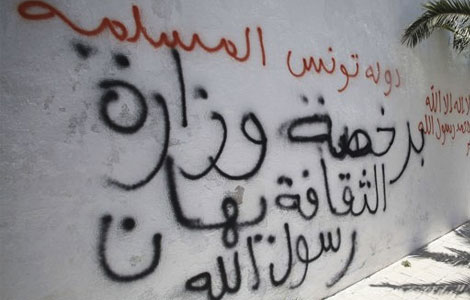 دوله تونس المسلمة
لا اله الا الله
محمد رسول الله
برخصة وزارة
الثقافة يهان
رسول الله